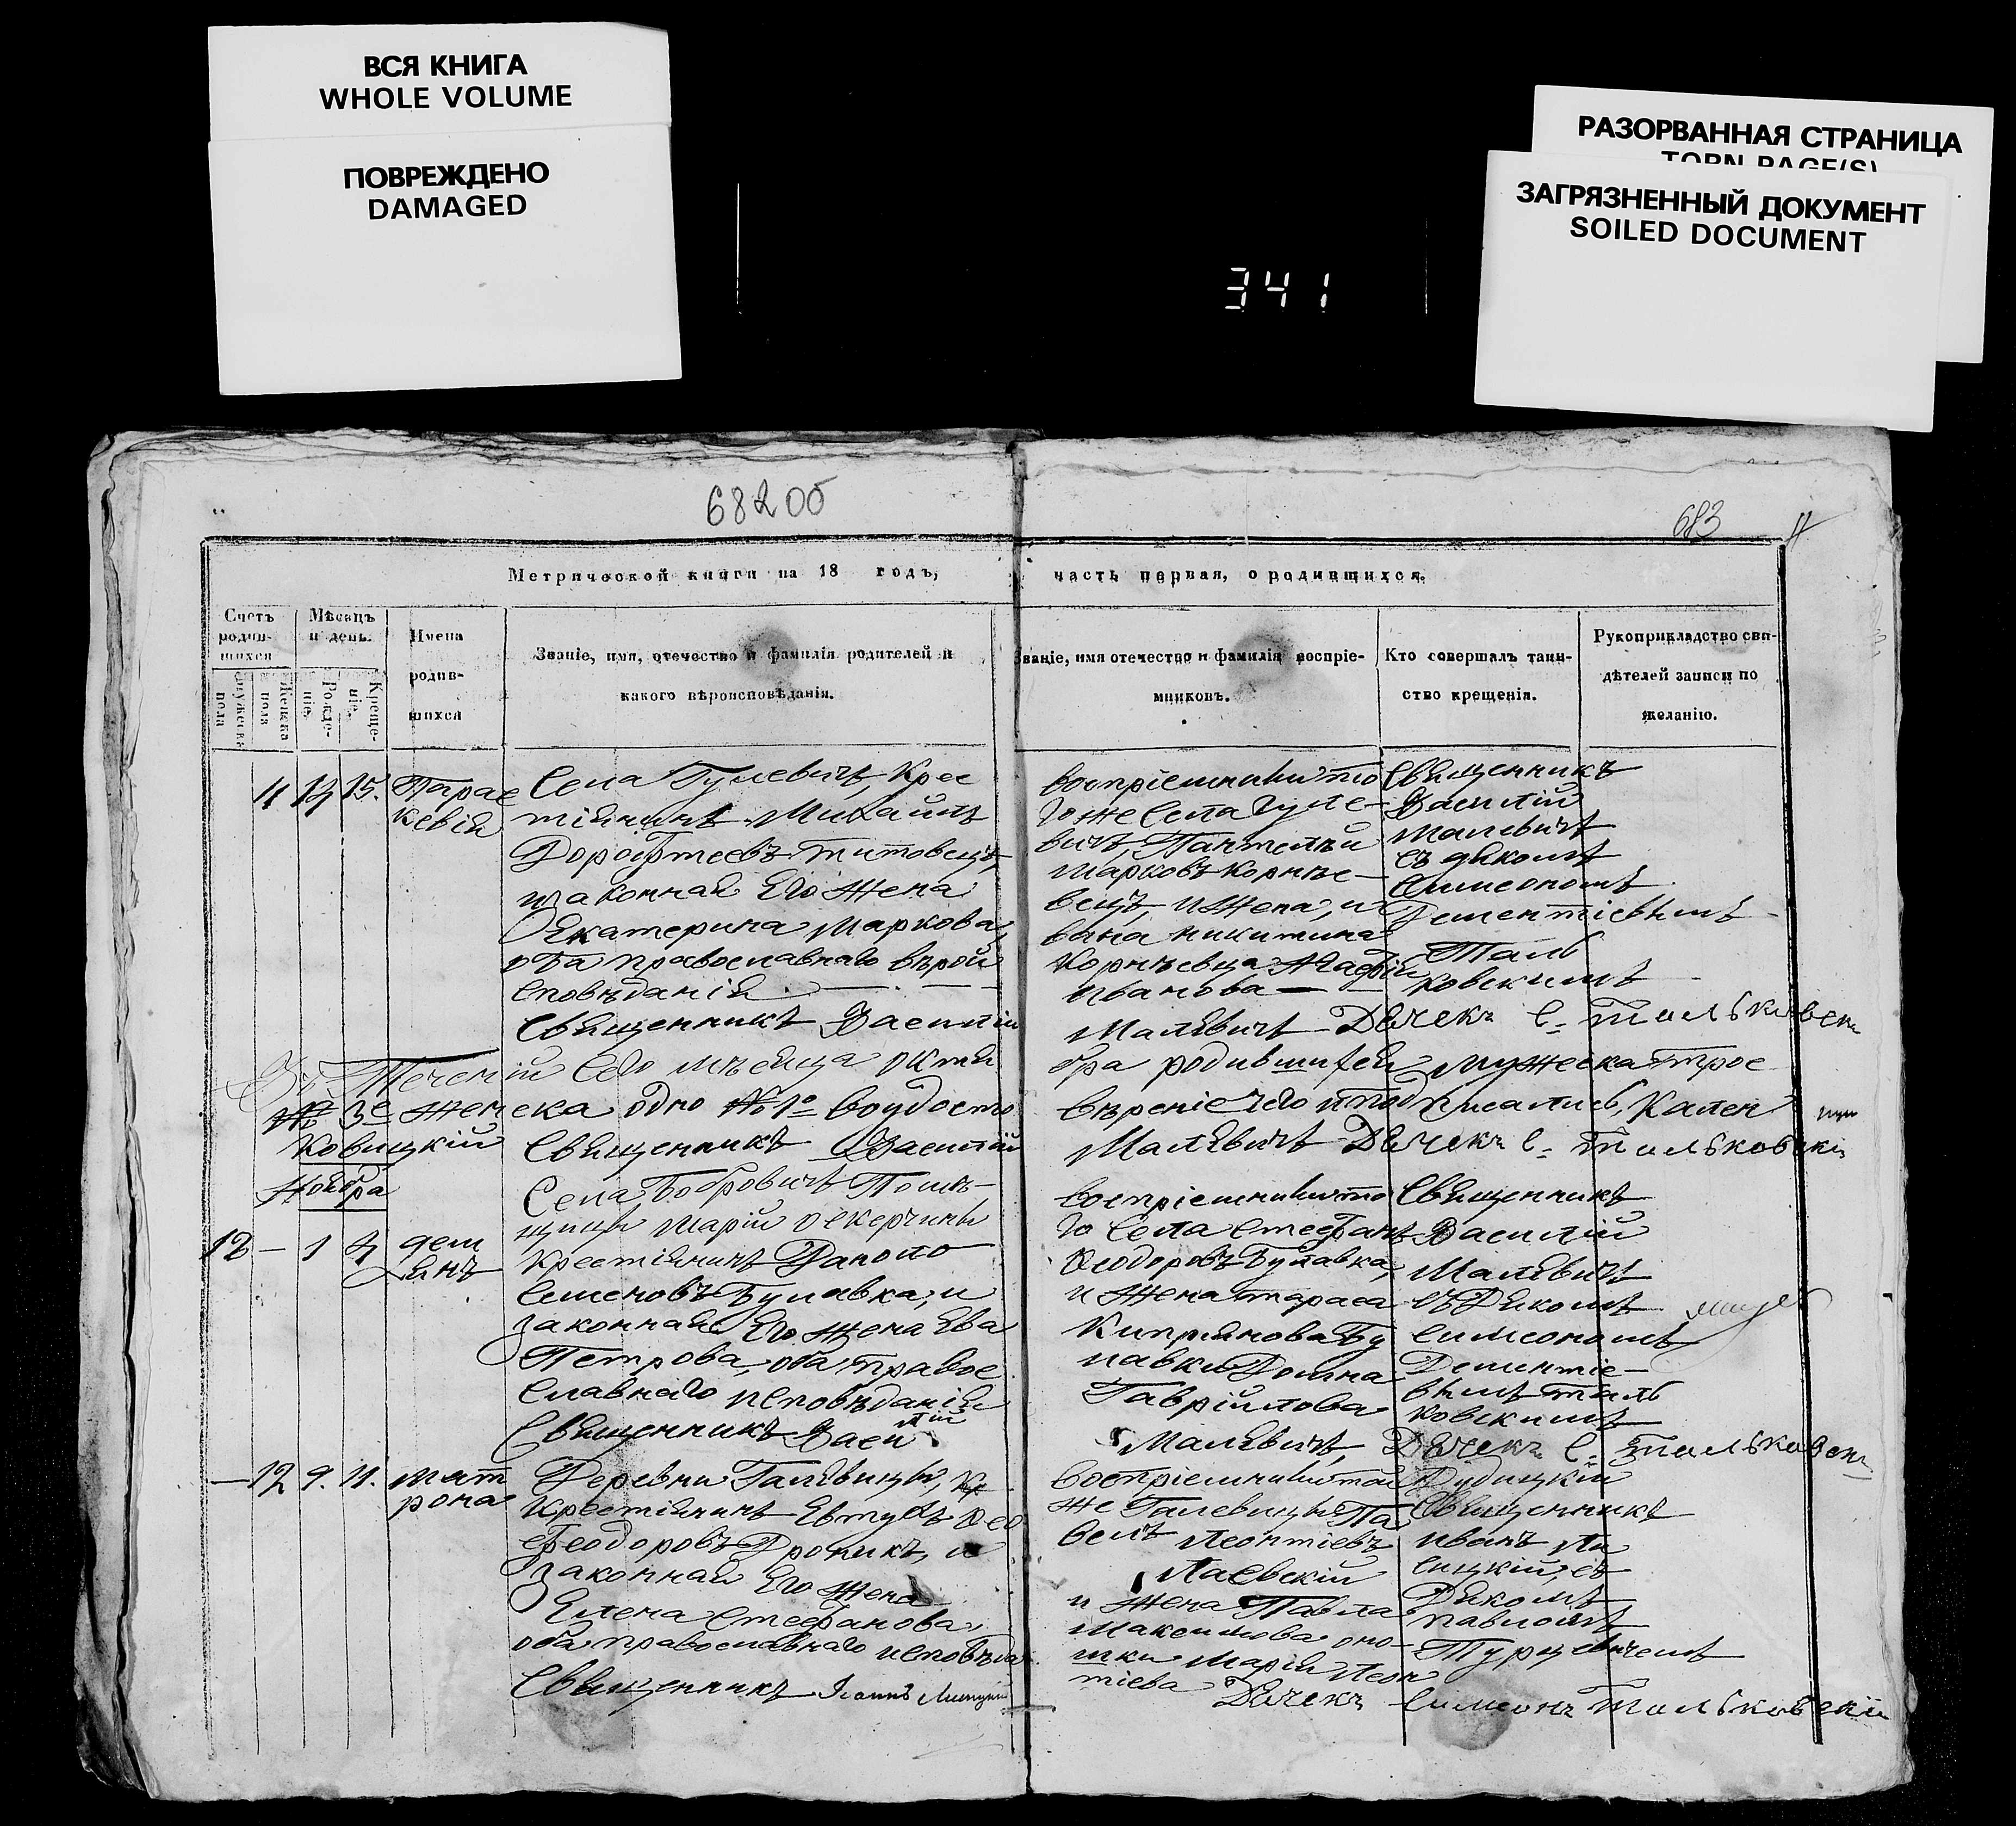 ВСЯ КНИГА
WHOLE VOLUME
ПОВРЕЖДЕНО
DAMAGED
РАЗОРВАННАЯ СТРАНИЦА
TORN PAGE(S)
ЗАГРЯЗНЕННЫЙ ДОКУМЕНТ
SOILED DOCUMENT
341
68200
683
Метрической книги на 18 годъ,
часть первая, о родившихся.
Счетъ родив-шихся
Мужеска пола
Женска пола
Мѣсяцъ и день.
Рожде-нiе.
Креще-нiе.
Имена
родив-
шихся
Званiе, имя, отечество и фамилiя родителей и
какого вѣроисповѣданiя.
Званiе, имя отечество и фамилiя воспрiе-
мниковъ.
Кто совершалъ таин-
ство крещенiя.
Рукоприкладство сви-
дѣтелей записи по
желанiю.
11 14 15. Парас
кевiя
Села Гулевичъ, Крес
тiянинъ Михаилъ
Дорофтеевъ Титовецъ,
изаконная Его Жена
Екатерина Маркова,
оба православнаго вѣрои
сповѣданiя
Священникъ Василiй
воспрiемники то
го же Села Гуле-
вичъ, Пантелѣй
Марковъ Корнѣе-
вецъ, и Жена, и
вана никитина
Корнѣевца Агафiя
Иванова
Священникъ
Василiй
Малевичъ
съ дякомъ
Симеономъ
Дементiевымъ
Таль
ковскимъ
Малевичъ Дячекъ С. Тальковски
Въ Теченiи Сего мѣсяца октя
бря родившихся мужеска трое
№ 3е женска одно № 1о воудосто
вѣренiе чего иподписались, Кален
ковицкiй Священникъ Василiй
Малевичъ Дячекъ С. Тальковскiй
Ноября
12 — 1 4 дем
янъ
Села Бобровичъ Помѣ-
щицы Марiи оскерчины
Крестiянинъ Данило
Семеновъ Булавка, и
законная Его Жена Ева
Петрова, оба правос
славнаго исповѣданiя
Священникъ Васи
лiй
воспрiемники то
го Села Стефанъ
Феодоровъ Булавка,
и Жена тараса
Киприянова Бу
лавки Домна
Гаврiилова
Священникъ
Василiй
Малевичъ
съ Дякомъ
Симеономъ
Дементiе-
вымъ таль
ковскимъ
Малевичъ, Дячекъ С. Тальковски
— 12 9. 11. мат
рона
Деревни Галевицы,
Крестiянинъ Евтухъ
Феодоровъ Дроникъ, и
Законная Его Жена
Елена Стефанова,
оба православнаго исповѣда
Священникъ Iоаннъ Лисицкiй
воспрiемники тои
же Галевицы Па
велъ Леонтiевъ
Лаевскiй
и Жена Павла
Максимова оно-
шки Марiя Леон
тiева
Дудицкiй
Священникъ
Иванъ Ли
сицкiй, съ
Дякомъ
павломъ
Турцевичемъ
Дячекъ Симеонъ Тальковскiй